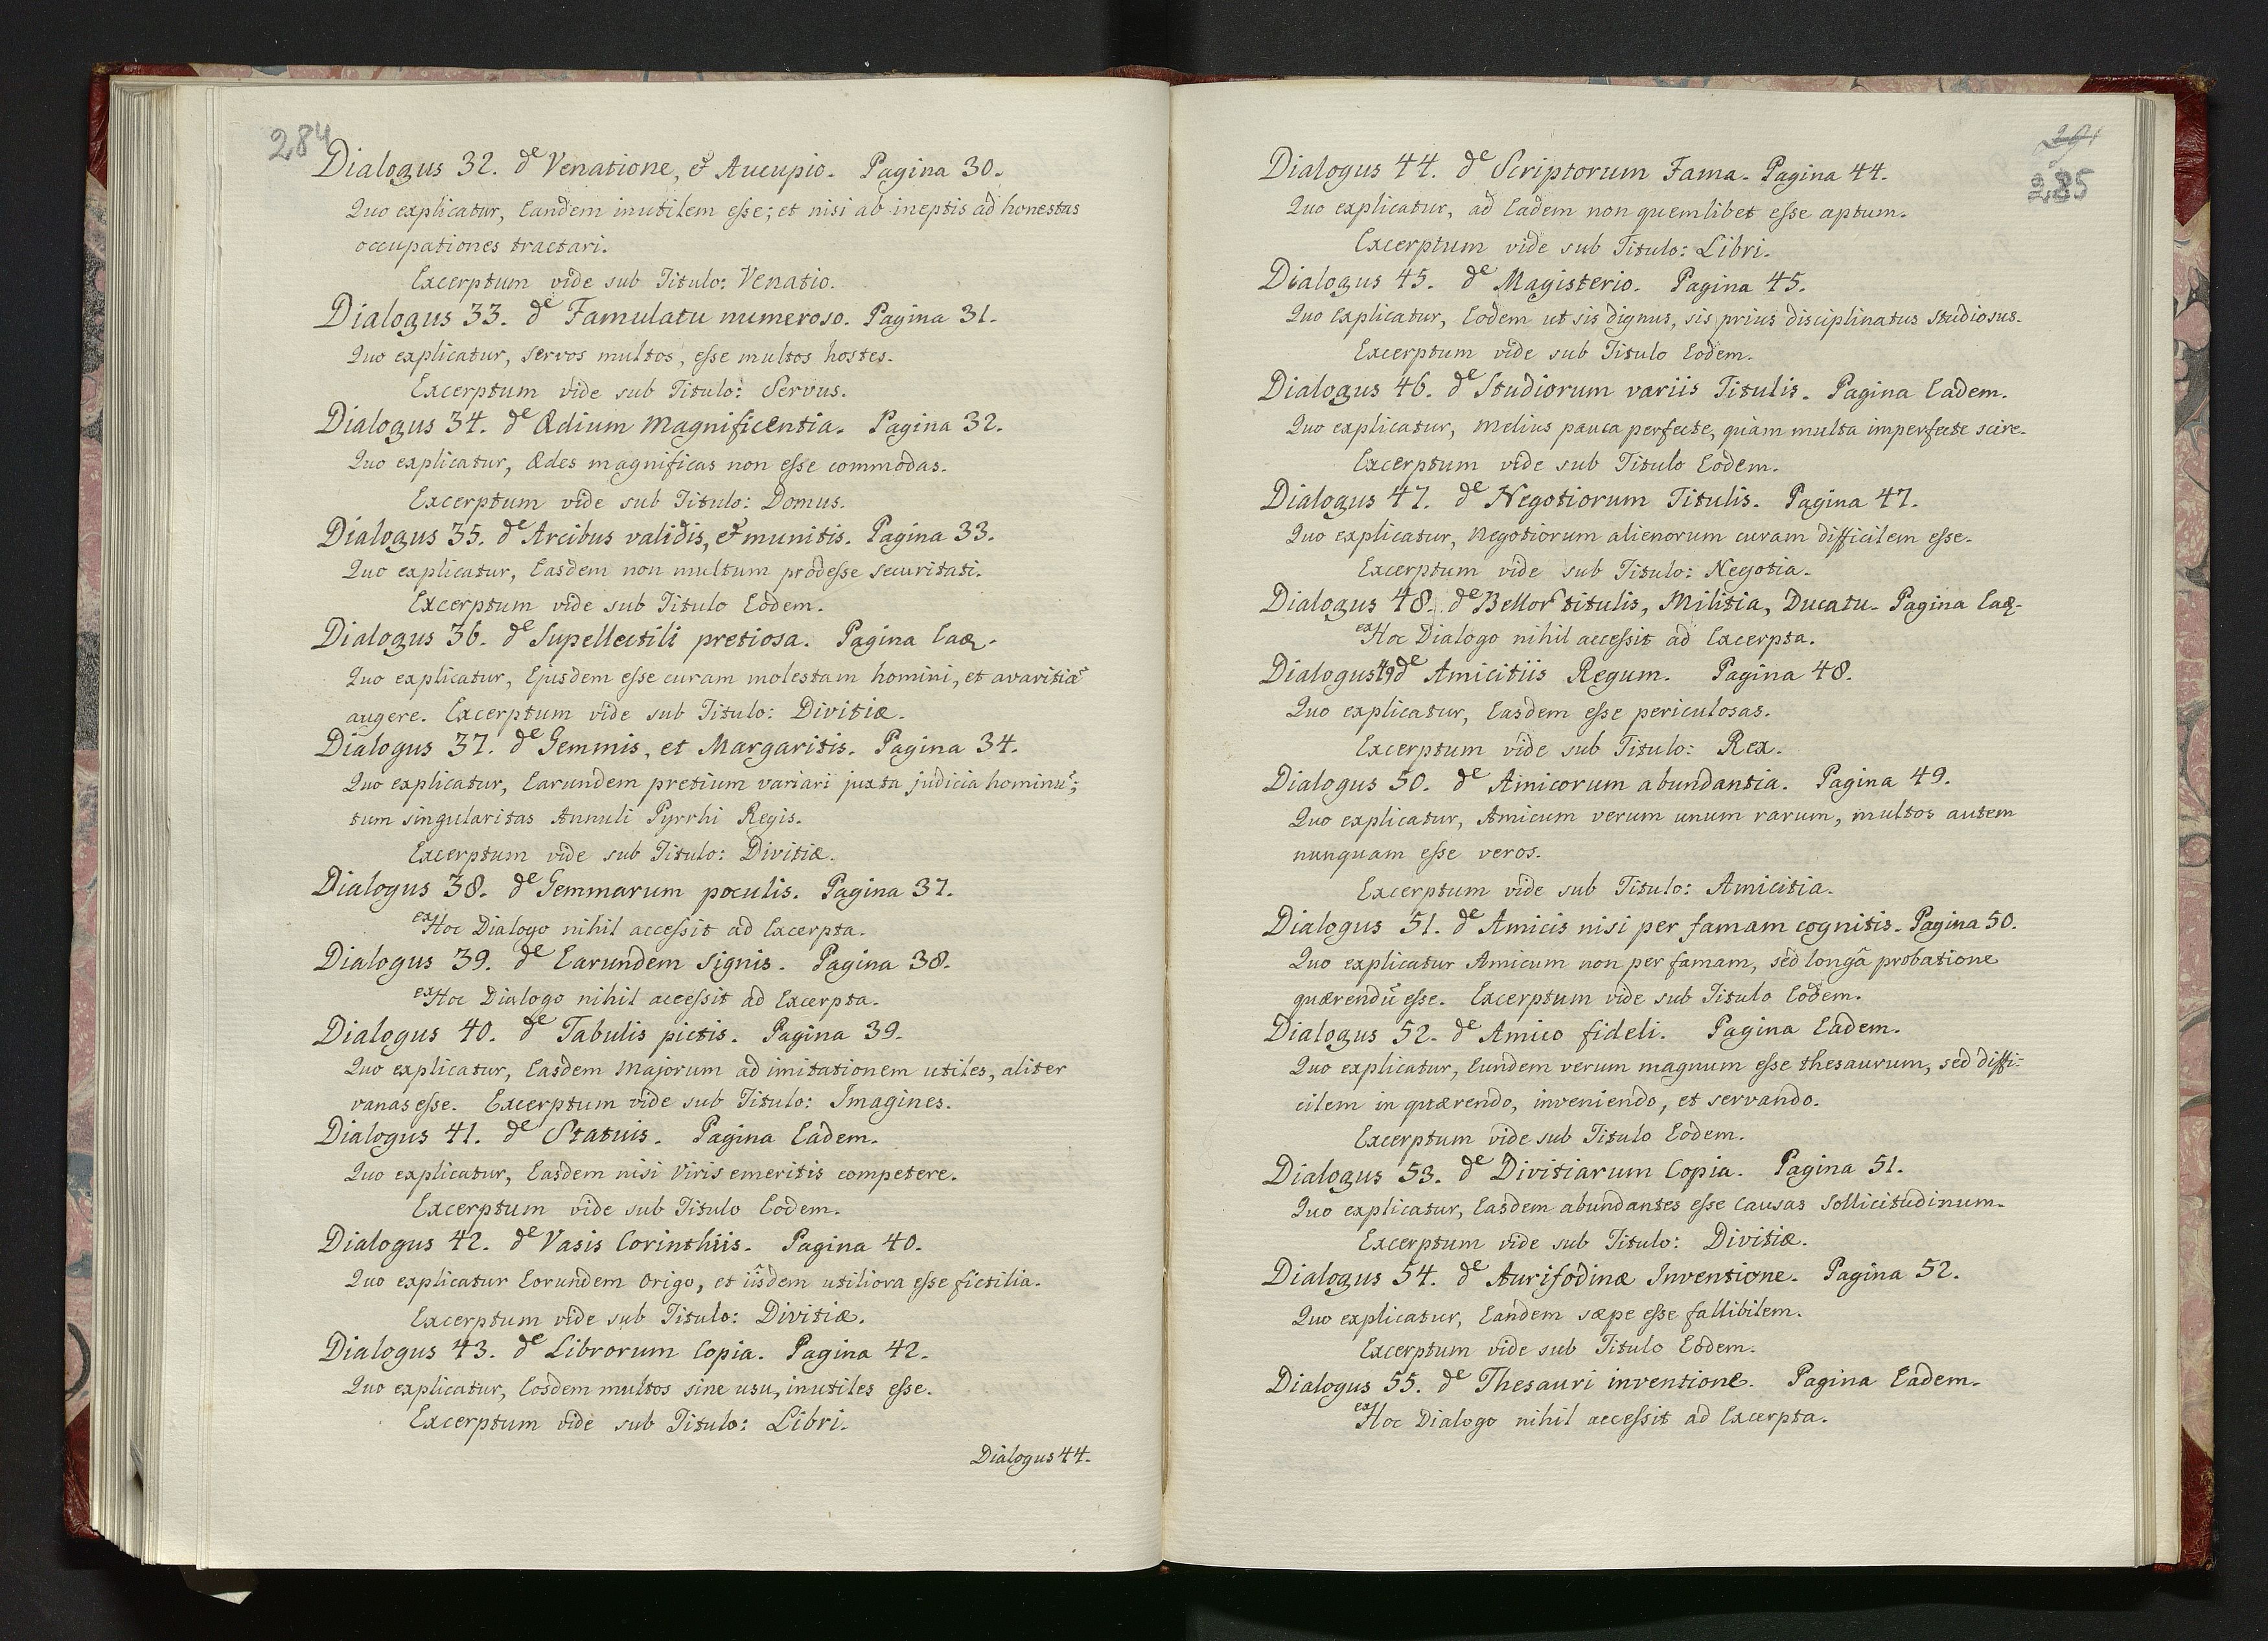 284
Dialogus 32. de Venatione, et Aucupio. Pagina 30.
Quo explicatur, Eandem inutilem esse; et nisi ab ineptis ad honestas
occupationes tractari.
Excerptum vide sub Titulo: Venatio.
Dialogus 33. de Famulatu numeroso. Pagina 31.
Quo explicatur, Servos multos, esse multos hostes.
Excerptum vide sub Titulo: Servus.
Dialogus 34. de Ædium Magnificentia. Pagina 32.
Quo explicatur, Ædes magnificas non esse commodas.
Excerptum vide sub Titulo: Domus.
Dialogus 35. de Arcibus validis, et munitis. Pagina 33.
Quo explicatur, Easdem non multum prodesse securitati.
Excerptum vide sub Titulo Eodem.
Dialogus 36. de Supellectili pretiosa. Pagina Eađ.
Quo explicatur, Ejusdem esse curam molestam homini, et avaritiã
augere. Excerptum vide sub Titulo: Divitiæ.
Dialogus 37. de Gemmis, et Margaritis. Pagina 34.
Quo explicatur, Earundem pretium variari juxta judicia hominũ;
tum singularitas Annuli Pyrrhi Regis.
Excerptum vide sub Titulo: Divitiæ.
Dialogus 38. de Gemmarum poculis. Pagina 37.
ex Hoc Dialogo nihil accessit ad Excerpta.
Dialogus 39. de Earundem signis. Pagina 38.
ex Hoc Dialogo nihil accessit ad Excerpta.
Dialogus 40. de Tabulis pictis. Pagina 39.
Quo explicatur, Easdem Majorum ad imitationem utiles, aliter
vanas esse. Excerptum vide sub Titulo: Imagines.
Dialogus 41. de Statuis. Pagina Eadem.
Quo explicatur, Easdem nisi Viris emeritis competere.
Excerptum vide sub Titulo Eodem.
Dialogus 42. de Vasis Corinthiis. Pagina 40.
Quo explicatur Eorundem Origo, et iîsdem utiliora esse fictilia.
Excerptum vide sub Titulo: Divitiæ.
Dialogus 43. de Librorum Copia. Pagina 42.
Quo explicatur, Eosdem multos sine usu, inutiles esse.
Excerptum vide sub Titulo: Libri.
Dialogus 44.
285
Dialogus 44. de Scriptorum Fama. Pagina 44.
Quo explicatur, ad Eadem non quemlibet esse aptum.
Excerptum vide sub Titulo: Libri.
Dialogus 45. de Magisterio. Pagina 45.
Quo explicatur, Eodem ut sis dignus, sis prius disciplinatus Studiosus.
Excerptum vide sub Titulo Eodem.
Dialogus 46. de Studiorum variis Titulis. Pagina Eadem.
Quo explicatur, Melius pauca perfecte, quàm multa imperfecte scire.
Excerptum vide sub Titulo Eodem.
Dialogus 47. de Negotiorum Titulis. Pagina 47.
Quo explicatur, Negotiorum alienorum curam difficilem esse.
Excerptum vide sub Titulo: Negotia.
Dialogus 48. de Bellor titulis, Militia, Ducatu. Pagina Eađ.
ex Hoc Dialogo nihil accessit ad Excerpta.
Dialogus 49 de Amicitiis Regum. Pagina 48.
Quo explicatur, Easdem esse periculosas.
Excerptum vide sub Titulo: Rex.
Dialogus 50. de Amicorum abundantia. Pagina 49.
Quo explicatur, Amicum verum unum rarum, multos autem
nunquam esse veros.
Excerptum vide sub Titulo: Amicitia.
Dialogus 51. de Amicis nisi per famam cognitis. Pagina 50.
Quo explicatur Amicum non per famam, sed longâ probatione
quærendũ esse. Excerptum vide sub Titulo Eodem.
Dialogus 52. de Amico fideli. Pagina Eadem.
Quo explicatur, Eundem verum magnum esse thesaurum, sed diffi-
cilem in quærendo, inveniendo, et servando.
Excerptum vide sub Titulo Eodem.
Dialogus 53. de Divitiarum Copia. Pagina 51.
Quo explicatur, Easdem abundantes esse Causas Sollicitudinum.
Excerptum vide sub Titulo: Divitiæ.
Dialogus 54. de Aurifodinæ Inventione. Pagina 52.
Quo explicatur, Eandem sæpe esse fallibilem.
Excerptum vide sub Titulo Eodem.
Dialogus 55. de Thesauri inventione. Pagina Eadem.
ex Hoc Dialogo nihil accessit ad Excerpta.